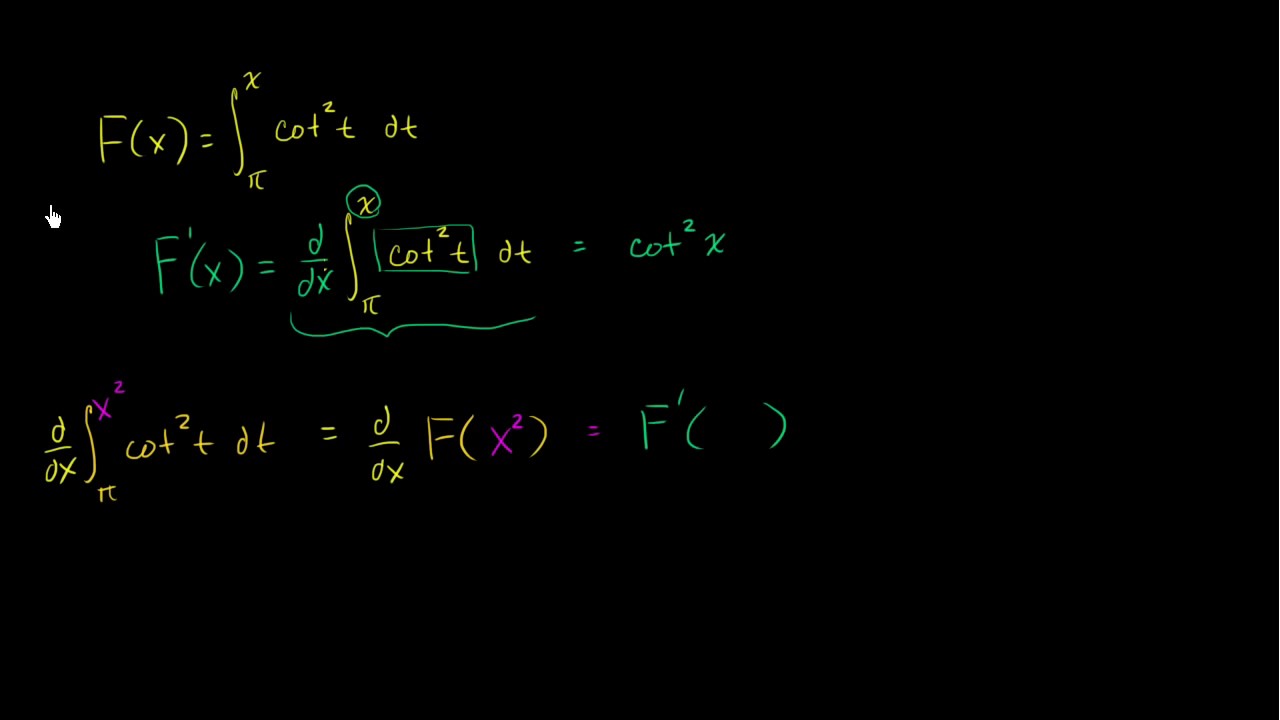 F(x) = ∫_π^x cot² t dt
F'(x) = d/dx ∫_π^x cot² t dt = cot² x
d/dx ∫_π^x² cot² t dt = d/dx F(x²) = F'( )